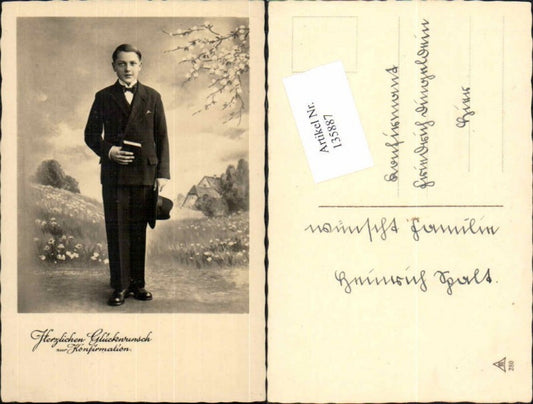 Herzlichen Glückwunsch
zur Konfirmation.
Artikel Nr.
135887
Konfirmand
Friedrich Dingeldein
Hier
wünscht Familie
Heinrich Spalt.
260